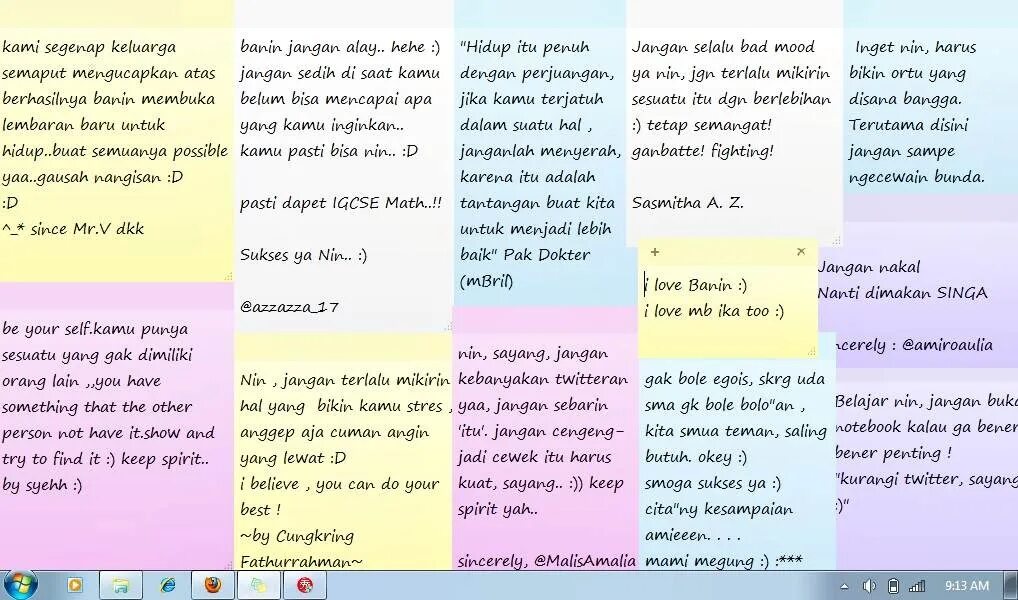 kami segenap keluarga
semaput mengucapkan atas
berhasilnya banin membuka
lembaran baru untuk
hidup..buat semuanya possible
yaa..gausah nangisan :D
:D
^_* since Mr.V dkk
banin jangan alay.. hehe :)
jangan sedih di saat kamu
belum bisa mencapai apa
yang kamu inginkan..
kamu pasti bisa nin.. :D
pasti dapet IGCSE Math..!!
Sukses ya Nin.. :)
@azzazza_17
"Hidup itu penuh
dengan perjuangan,
jika kamu terjatuh
dalam suatu hal ,
janganlah menyerah,
karena itu adalah
tantangan buat kita
untuk menjadi lebih
baik" Pak Dokter
(mBril)
Jangan selalu bad mood
ya nin, jgn terlalu mikirin
sesuatu itu dgn berlebihan
:) tetap semangat!
ganbatte! fighting!
Sasmitha A. Z.
Inget nin, harus
bikin ortu yang
disana bangga.
Terutama disini
jangan sampe
ngecewain bunda.
i love Banin :)
i love mb ika too :)
Jangan nakal
Nanti dimakan SINGA
ncerely : @amiroaulia
be your self.kamu punya
sesuatu yang gak dimiliki
orang lain ,,you have
something that the other
person not have it.show and
try to find it :) keep spirit..
by syehh :)
Nin , jangan terlalu mikirin
hal yang bikin kamu stres ,
anggep aja cuman angin
yang lewat :D
i believe , you can do your
best !
~by Cungkring
Fathurrahman~
nin, sayang, jangan
kebanyakan twitteran
yaa, jangan sebarin
'itu'. jangan cengeng-
jadi cewek itu harus
kuat, sayang.. :)) keep
spirit yah..
sincerely, @MalisAmalia
gak bole egois, skrg uda
sma gk bole bolo"an ,
kita smua teman, saling
butuh. okey :)
smoga sukses ya :)
cita"ny kesampaian
amieeen. . . .
mami megung :) :***
Belajar nin, jangan buka
notebook kalau ga bener
bener penting !
"kurangi twitter, sayang
:)"
9:13 AM